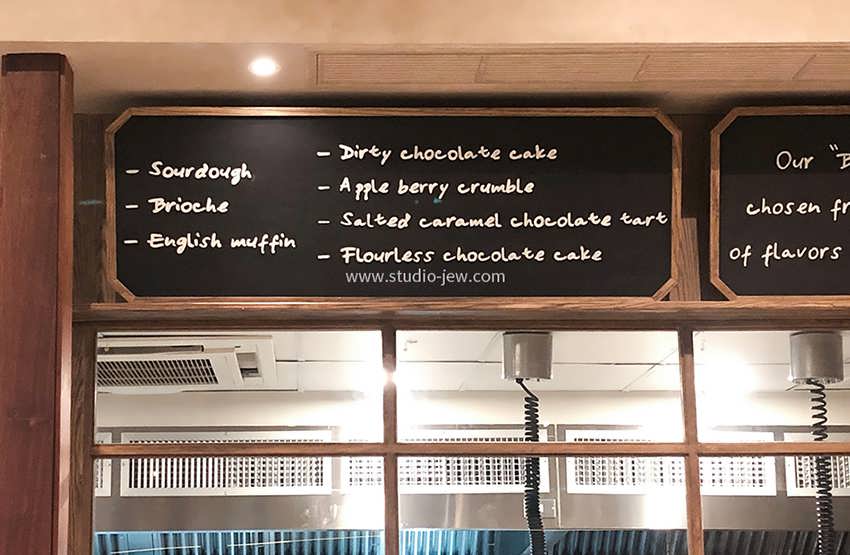 - Sourdough
- Brioche
- English muffin
- Dirty chocolate cake
- Apple berry crumble
- Salted caramel chocolate tart
- Flourless chocolate cake
www.studio-jew.com
Our "B
chosen fr
of flavors